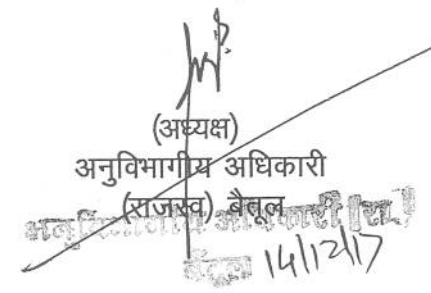 (अध्यक्ष)
अनुविभागीय अधिकारी
(राजस्व) बैतूल
अनुविभागीय अधिकारी (रा.)
बैतूल 14/12/17